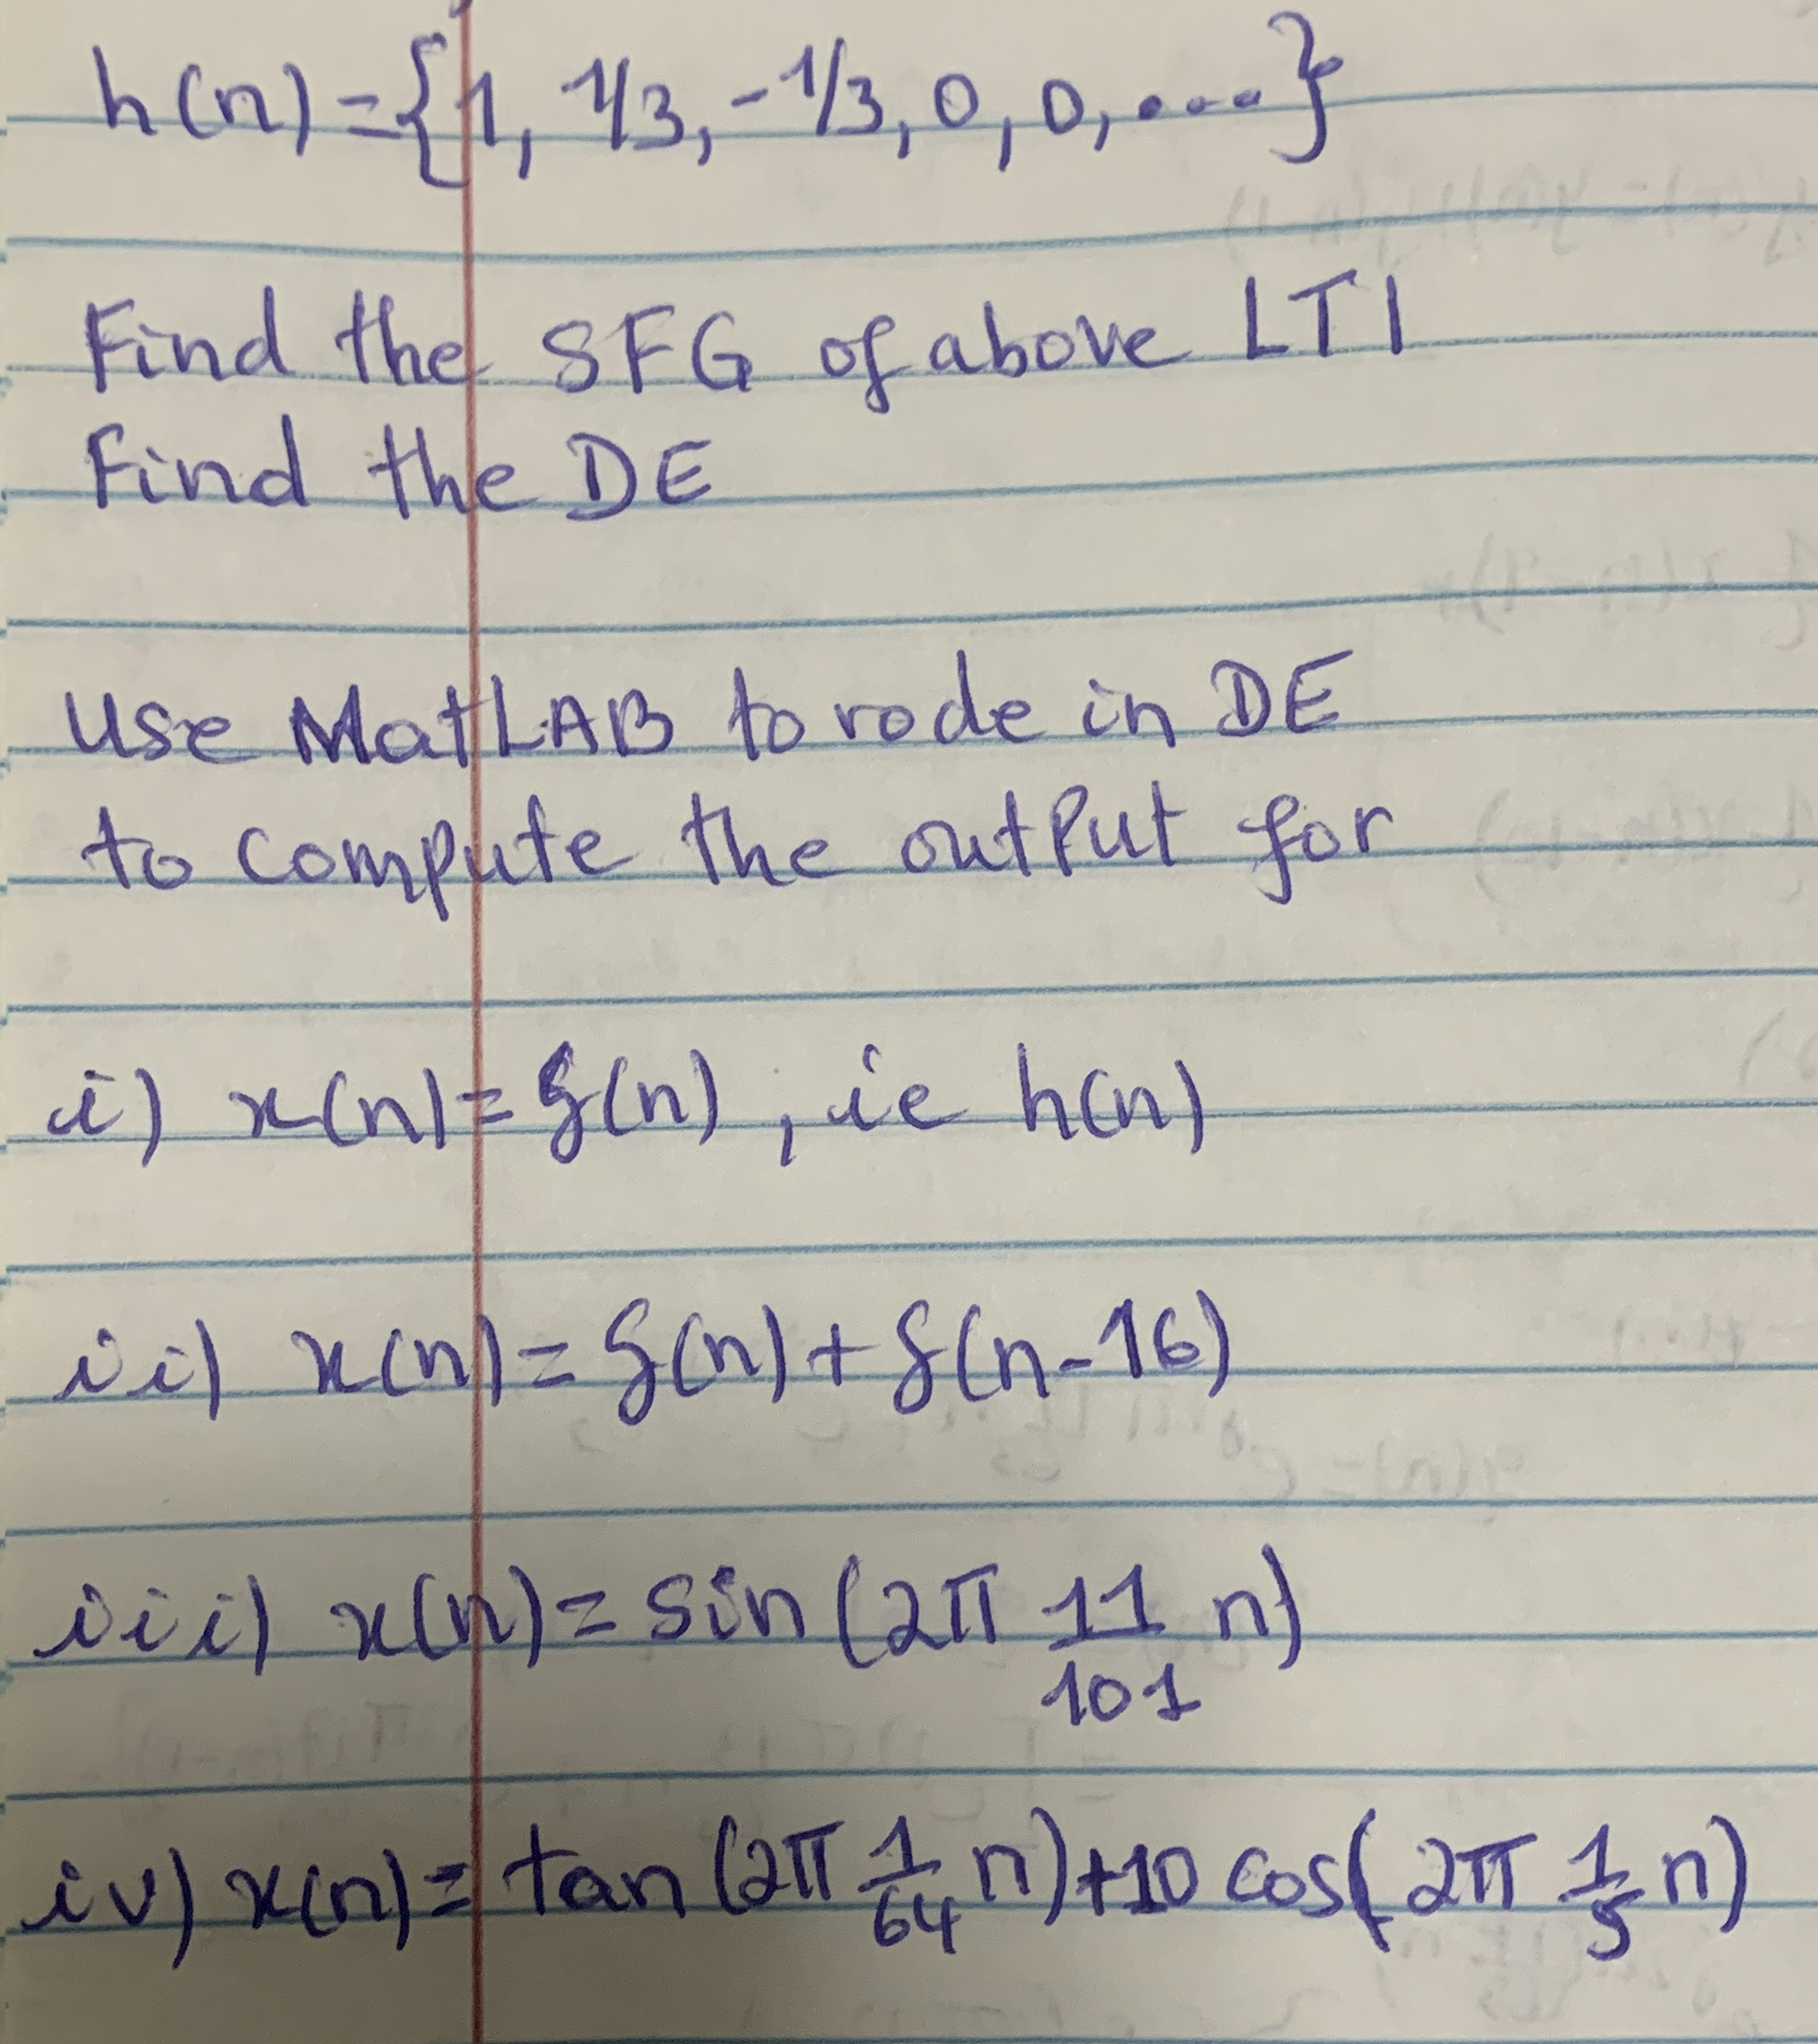 h(n)={1, 1/3, -1/3, 0, 0, ....}
Find the SFG of above LTI
Find the DE
Use MatLAB to code in DE
to compute the output for
i) x(n)=δ(n), ie h(n)
ii) x(n)=δ(n)+δ(n-16)
iii) x(n)=sin(2π 11/101 n)
iv) x(n)=tan(2π 1/64 n)+10 cos(2π 1/5 n)